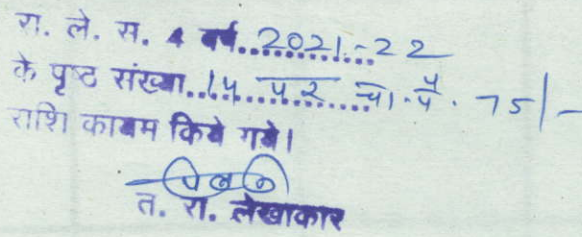 रा. ले. स. 4 वर्ष 2021-22
के पृष्ठ संख्या 14 पर 75/-
राशि कायम किये गये।
त. रा. लेखाकार